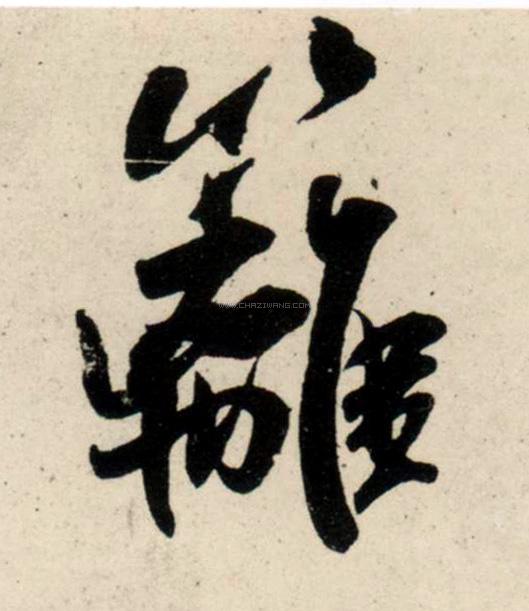 籬
WWW.CHAZIWANG.COM